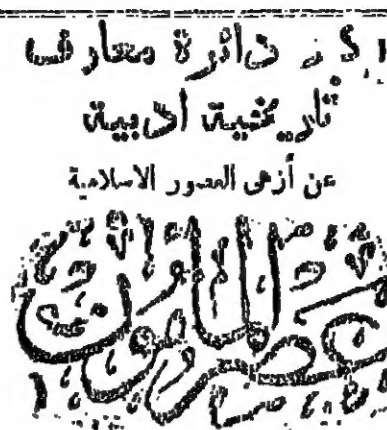 دائرة معارف
تاريخية أدبية
عن أزهى العصور الاسلامية
عصر المأمون